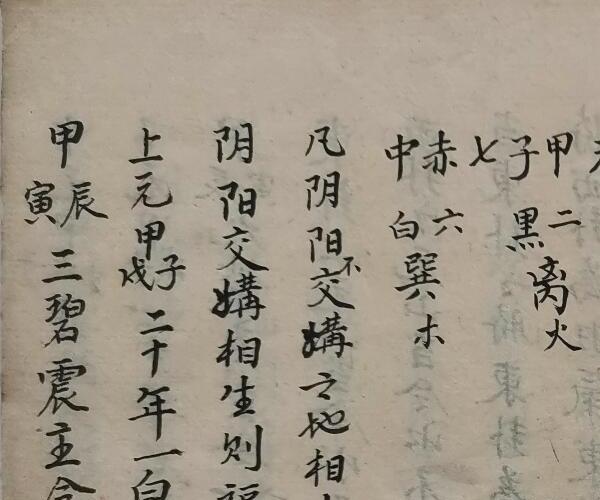 甲子二黑离火
七赤中六白巽木
凡阴阳不交媾之地相
阴阳交媾相生则
上元甲子戌二十年一白
甲辰寅三碧震主